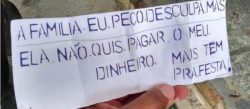 A FAMILIA. EU. PEÇO DESCULPA. MAS
ELA. NÃO. QUIS. PAGAR. O MEU.
DINHEIRO. MAIS TEM
PRA FESTA!